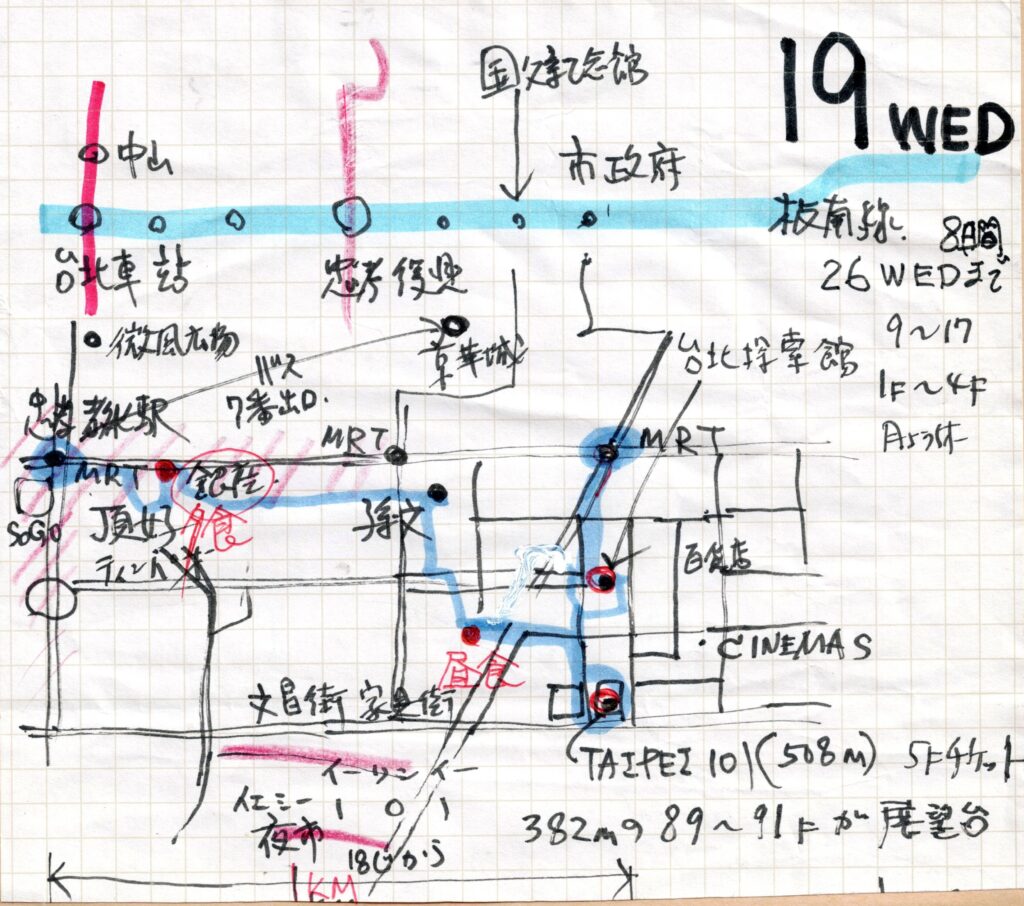 19 WED
国父記念館
中山
市政府
板南線
台北車站
忠孝復興
8日間
26 WEDまで
9～17
1F～4F
微風広場
京華城
バス
7番出口
台北探索館
MRT
MRT
MRT
銀座
SOGO
頂好
夕食
孫文
百貨店
CINEMAS
昼食
文昌街 家具街
TAIPEI 101(508m) 5Fチケット
イーリンイー
1 0 1
夜市
18じから
382mの89～91Fが展望台
1KM